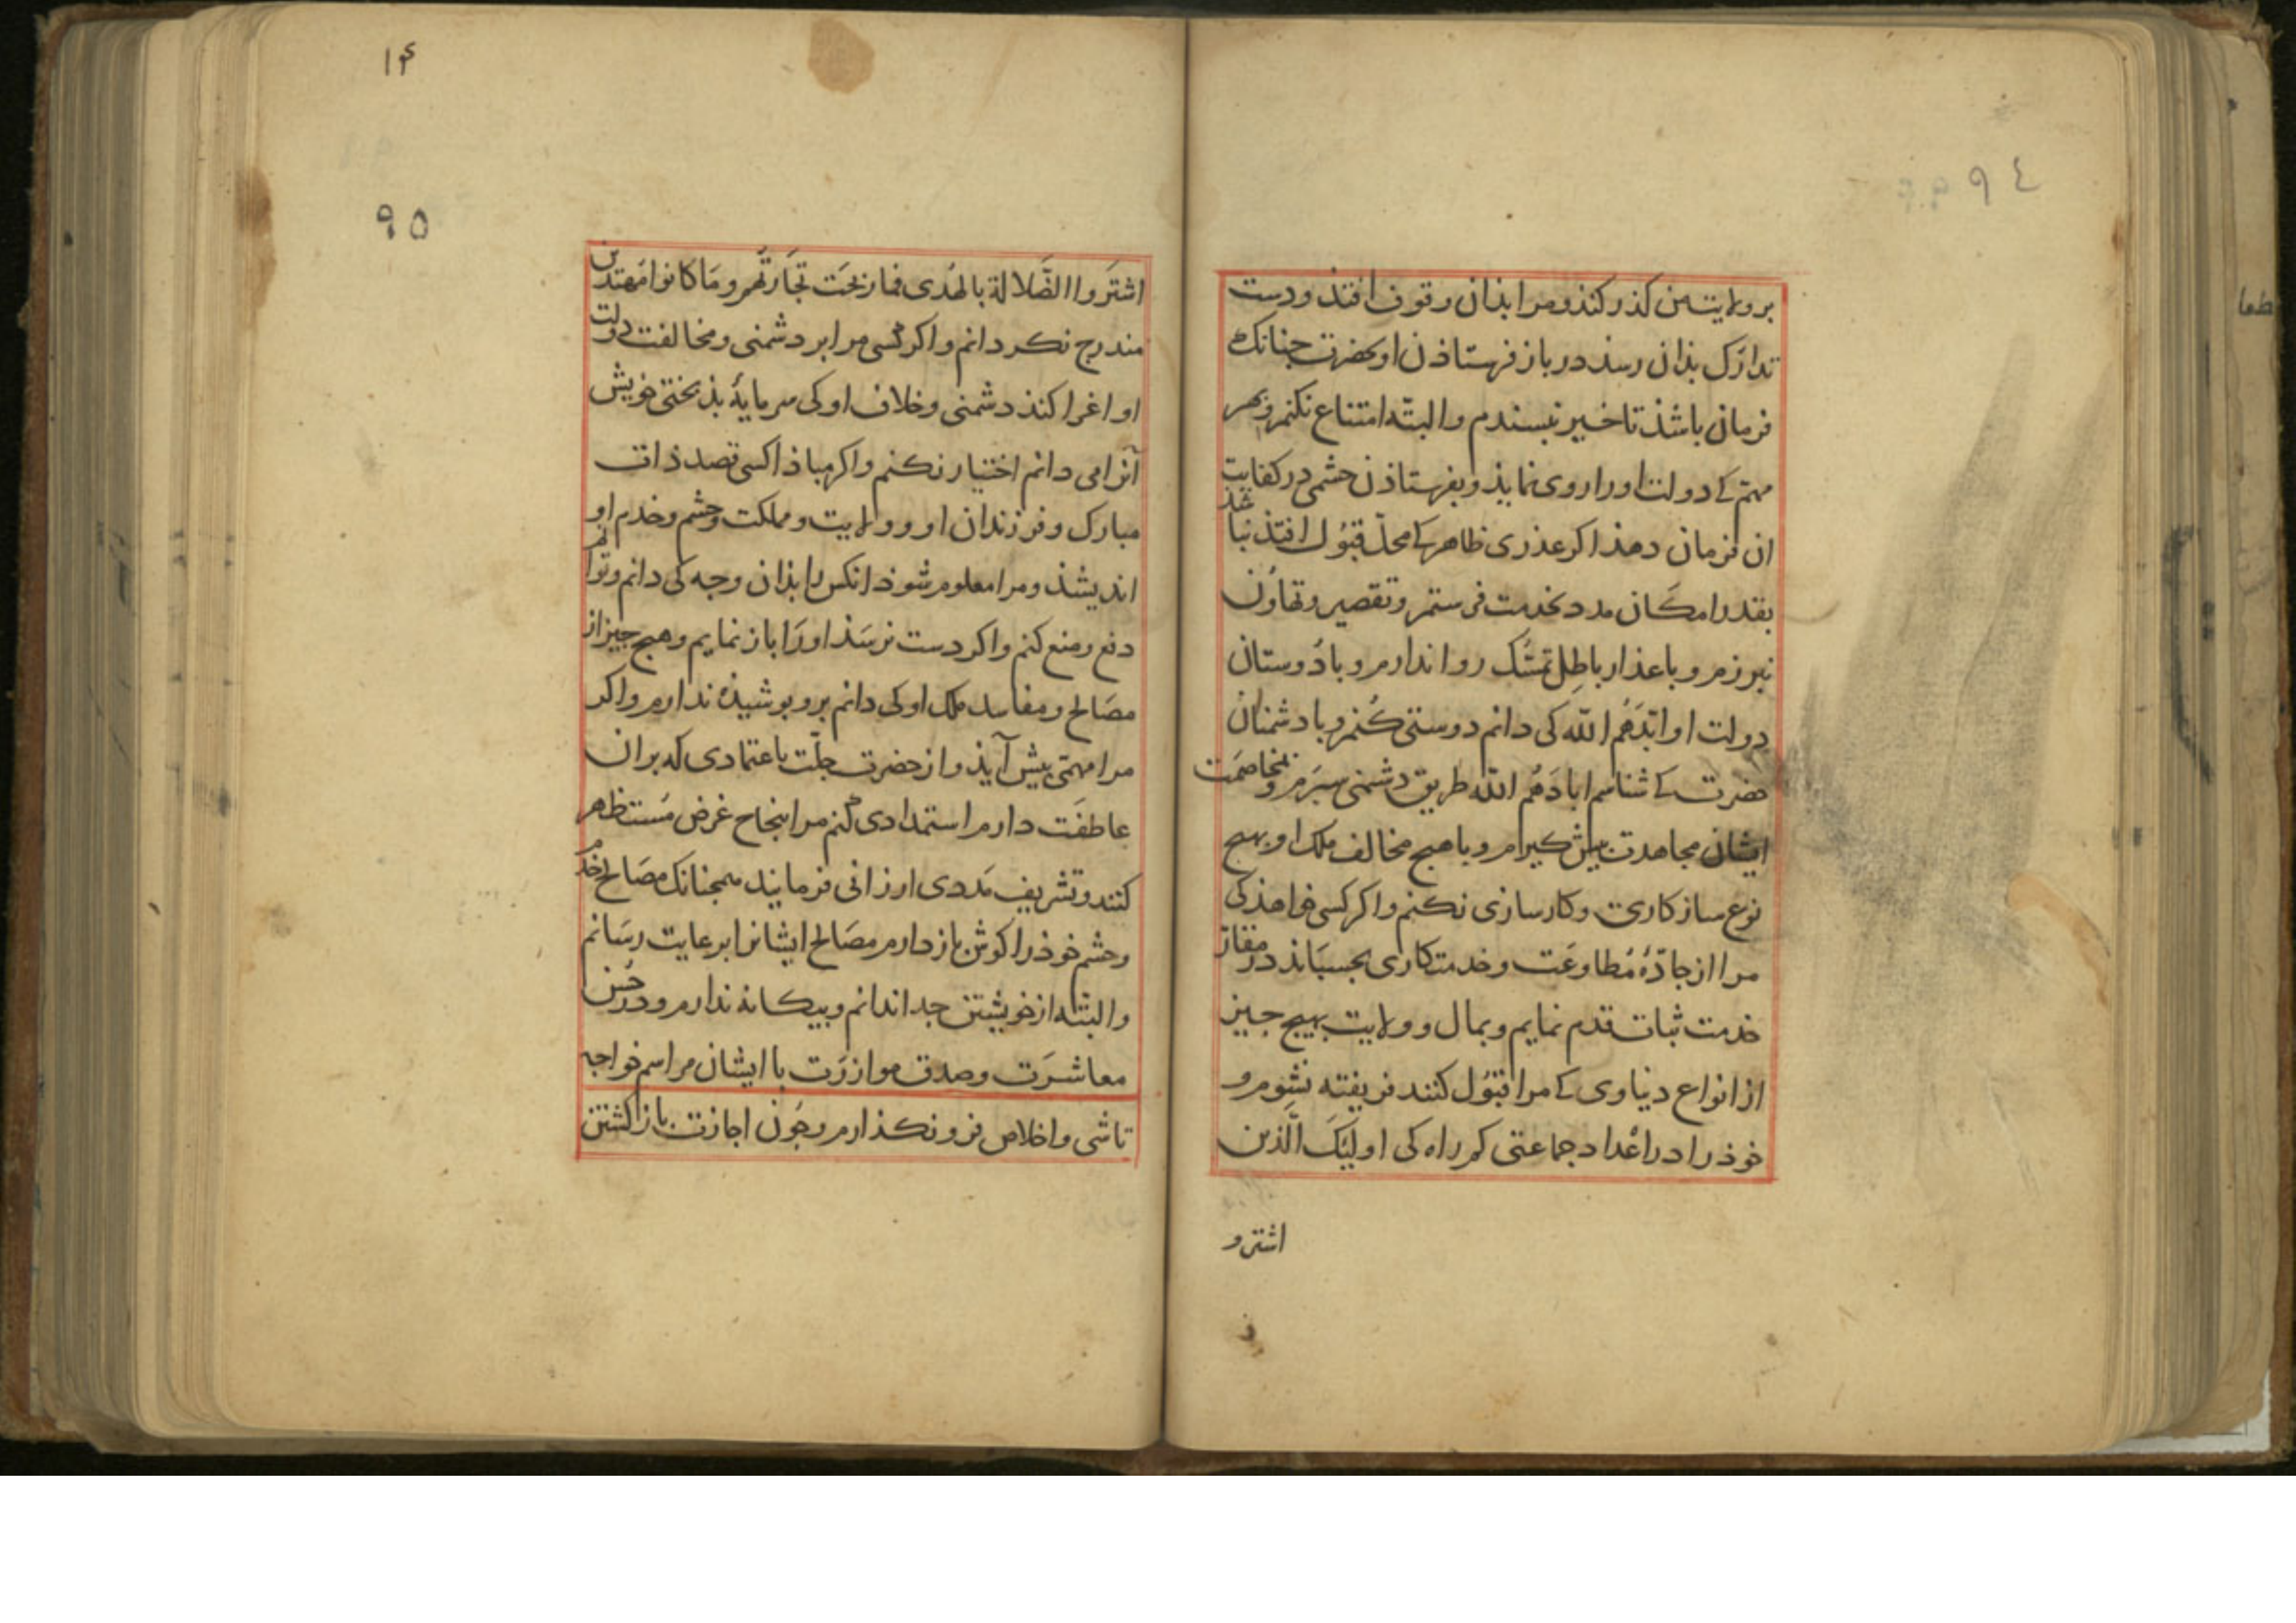 ٩٤
بر ولایت من کذر کند و مرا بذان وقوف افتذ و دست
تدارک بذان رسد در باز فرستاذن او بحضرت جنانک
فرمان باشذ تاخیر نبسندم والبتّه امتناع نکنم و بهر
مهمّ کے دولت او را روی نمایذ و بفرستاذن حشمی در کفایت
ان فرمان دهد اکر عذری ظاهر کے محلّ قبُول افتذ نباشد
بقدر امکان مدد بخدمت فرستم و تقصیر و تهاوُن
نبرزم و باعذار باطِل تمسُّک روا ندارم و با دُوستان
دولت او ابّدَهُم الله کی دانم دوستی کُنم و با دشمنان
حضرت کے شناسم ابادَهُم الله طریق دشمنی سبَرم و بمخاصمَت
ایشان مجاهدت بیش کیرم و با هیج مخالف ملک او بهیج
نوع سازکاری و کارسازی نکنم و اکر کسی خواهذ کی
مرا از جادّۀ مُطاوعَت و خدمتکاری بجسبَاند در مقام
خدمت ثبات قدم نمایم و بمال و ولایت بهیج جیز
از انواع دنیاوی کے مرا قبوُل کنند فریفته نشِوم و
خوذ را در اعْداد جماعتی کم راه کی اولیِکَ الَّذین
اشترو
۱۴
٩٥
اشتَرَوا الضَّلالة بالهُدی فما ربحَت تجَارتُهم و مَا کانوا مُهتدین
مندرج نکردانم و اکر کسی مرا بر دشمنی و مخالفت دولت
او اغرا کنذ دشمنی و خلاف او کی سرمایۀ بذبختی خویش
آنرا می دانم اختیار نکنم و اکر مباذا کسی قصد ذات
مبارک و فرزندان او و ولایت و مملکت و حشم و خدم او
اندیشذ و مرا معلوم شوذ انکس را بذان وجه کی دانم و توانم
دفع و منع کنم و اکر دست نرسَذ اورَا باز نمایم و هیج جیز از
مصَالح و مفاسد ملک او کی دانم برو بوشیذه ندارم و اکر
مرا مهمّی بیش آیذ و از حضرت جلّت باعتمادی که بران
عاطفَت دارم استمدادی کنم مرا بنجاح غرض مُستظهر
کنند و تشریف مَددی ارزانی فرمایند همجنانک مصَالح خدم
و حشم خوذ را کوش باز دارم مصَالح ایشانرا برعایت رسَانم
والبتّه از خویشتن جدا ندانم و بیکانه ندارم و در حُسن
معاشرَت و صدق موازرَت با ایشان مراسم خواجه
تاشی و اخلاص فرو نکذارم و جُون اجازت باز کشتن